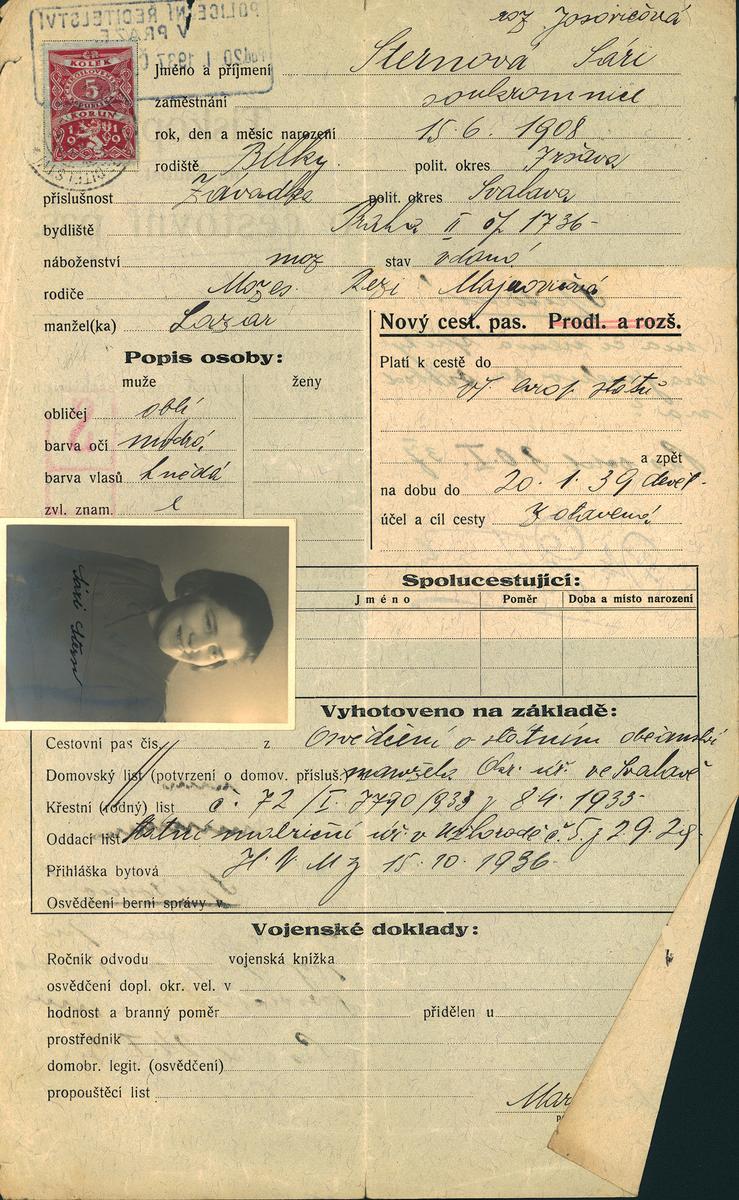 POLICEJNÍ ŘEDITELSTVÍ
V PRAZE
20 I 1937
KOLEK
5
KORUN
1919
roz Josovičová
Jméno a příjmení Sternová Sári
zaměstnání soukromnice
rok, den a měsíc narození 15. 6. 1908
rodiště Bilky. polit. okres Iršava
příslušnost Závadka polit. okres Svalava
bydliště Praha II čp 1736-
náboženství moz stav vdaná
rodiče Mozes Rezi
manžel(ka) Lazar
Nový cest. pas. Prodl. a rozš.
Popis osoby:
muže ženy
obličej oblí
barva očí modrá,
barva vlasů hnědá
zvl. znam.
Platí k cestě do
evrop států
a zpět
na dobu do 20. 1. 39
účel a cíl cesty Zotavená
Sári Stern
Spolucestující:
Jméno Poměr Doba a místo narození
Vyhotoveno na základě:
Cestovní pas čís. z Osvědčení o státním občanství
Domovský list (potvrzení o domov. přísluš.) manžela Okr. úř. ve Svalavě
Křestní (rodný) list č. 72/I. 7790/933 z 8 4. 1933-
Oddací list Státní matriční úř v Užhorodě č. 5. z 2. 9. 29-
Přihláška bytová H. V. M z 15. 10. 1936-
Osvědčení berní správy v
Vojenské doklady:
Ročník odvodu vojenská knížka
osvědčení dopl. okr. vel. v
hodnost a branný poměr přidělen u
prostředník
domobr. legit. (osvědčení)
propouštěcí list
Mar